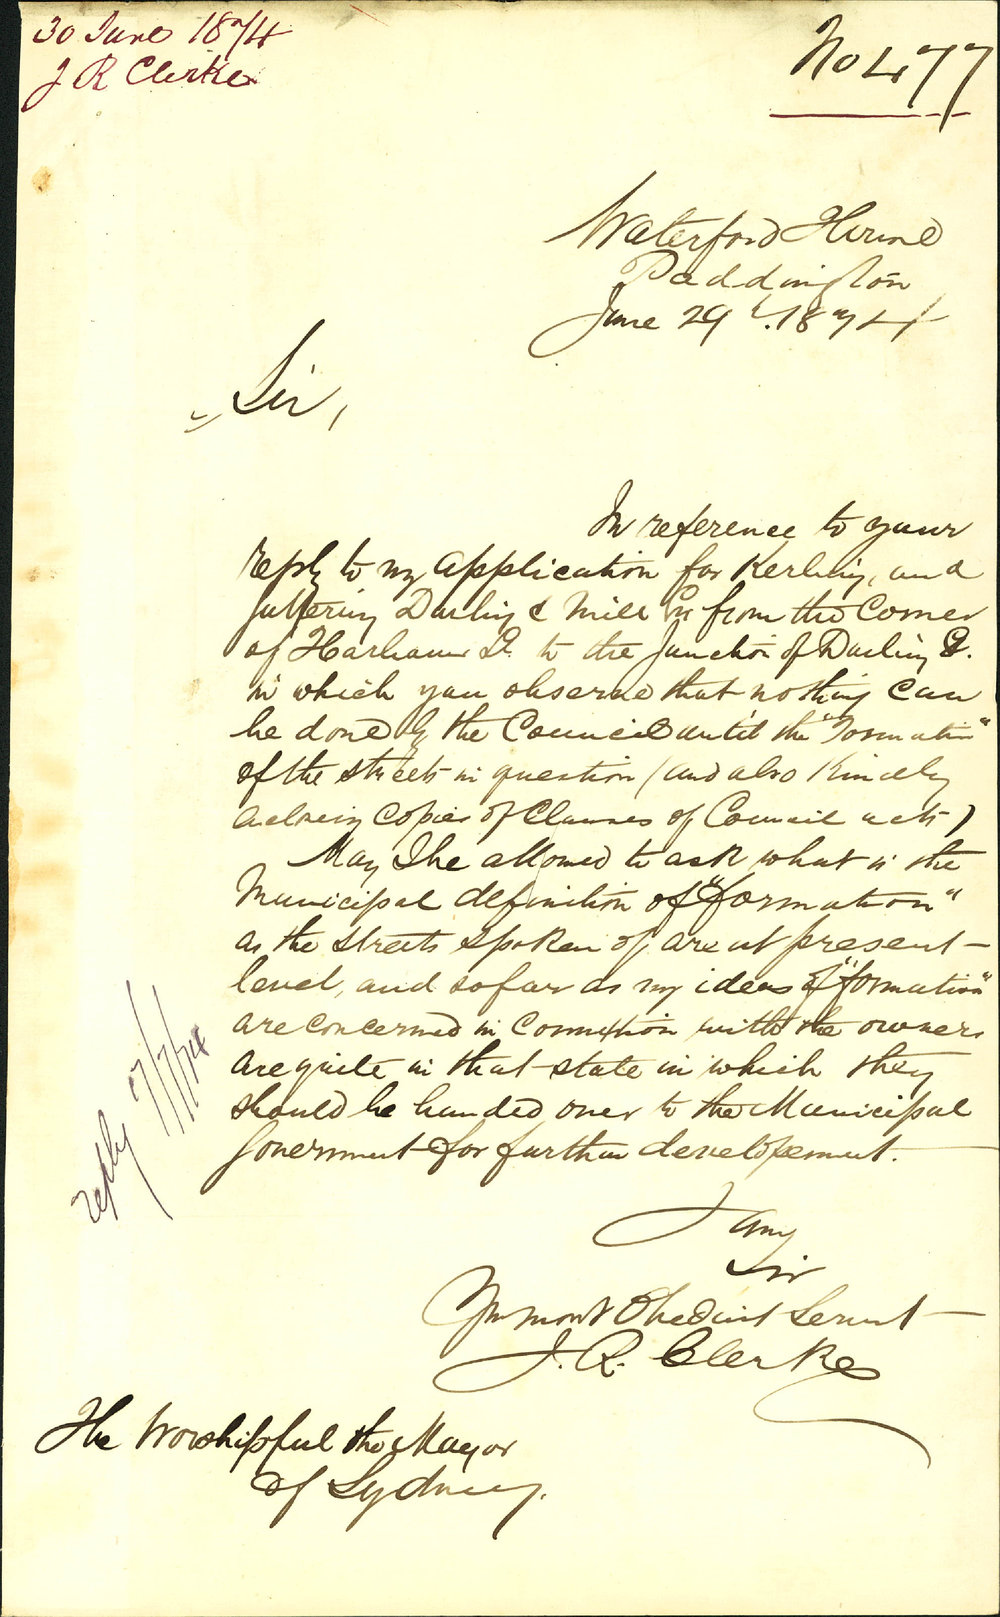 30 June 1874
J R Clerke
No 477
Waterford House
Paddington
June 29th. 1874
Sir,
In reference to your
reply to my application for Kerbing, and
guttering Darling & Mill Sts from the Corner
of Harbour St. to the Junction of Darling St.
in which you observe that nothing can
be done by the Council until the "Formation"
of the streets in question (and also Kindly
enclosing copies of Clauses of Council acts)
May I be allowed to ask what is the
Municipal definition of "formation"
as the streets spoken of are at present
level, and so far as my ideas of "formation"
are concerned in Connexion with the owners
are quite in that state in which they
should be handed over to the Municipal
Government for further developement.
I am
Sir
Your most Obedient Servant
J. R. Clerke
The Worshipful the Mayor
of Sydney.
reply 7/7/74